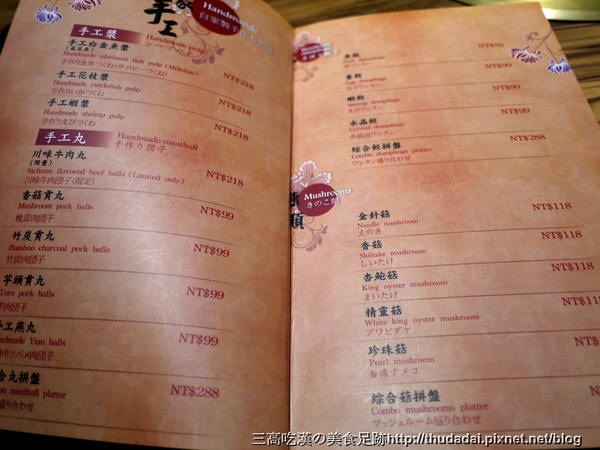 手工
Handmade
自家製手作り
手工漿
Handmade pulp
手工白金魚漿
(虱目魚)
Handmade platinum fish pulp (Milkfish)
手作り金魚つくね(サバヒーつくね)
NT$218
手工花枝漿
Handmade cuttlefish pulp
手作りいかつくね
NT$218
手工蝦漿
Handmade shrimp pulp
手作りえびつくね
NT$218
手工丸
Handmade meatball
手作り団子
川味牛肉丸
(限量)
Sichuan flavored beef balls (Limited only)
川味牛肉団子(限定)
NT$218
香菇貢丸
Mushroom pork balls
椎茸肉団子
NT$99
竹炭貢丸
Bamboo charcoal pork balls
竹炭肉団子
NT$99
芋頭貢丸
Taro pork balls
芋肉団子
NT$99
手工燕丸
Handmade Yian balls
手作りツバメ肉団子
NT$99
合丸拼盤
meatball platter
盛り合わせ
NT$288
魚餃
NT$99
蛋餃
dumplings
NT$99
蝦餃
Shrimp dumplings
NT$99
水晶餃
Crystal dumplings
水晶ワンタン
NT$99
綜合餃拼盤
Combo dumplings platter
ワンタン盛り合わせ
NT$288
Mushrooms
きのこ類
類
金針菇
Needle mushroom
えのき
NT$118
香菇
Shiitake mushroom
しいたけ
NT$118
杏鮑菇
King oyster mushroom
まいたけ
NT$118
精靈菇
White king oyster mushroom
アワビタケ
NT$118
珍珠菇
Pearl mushroom
台湾ナメコ
NT$11
綜合菇拼盤
Combo mushrooms platter
マッシュルーム盛り合わせ
NT$
三高吃漢の美食足跡http://thudadai.pixnet.net/blog